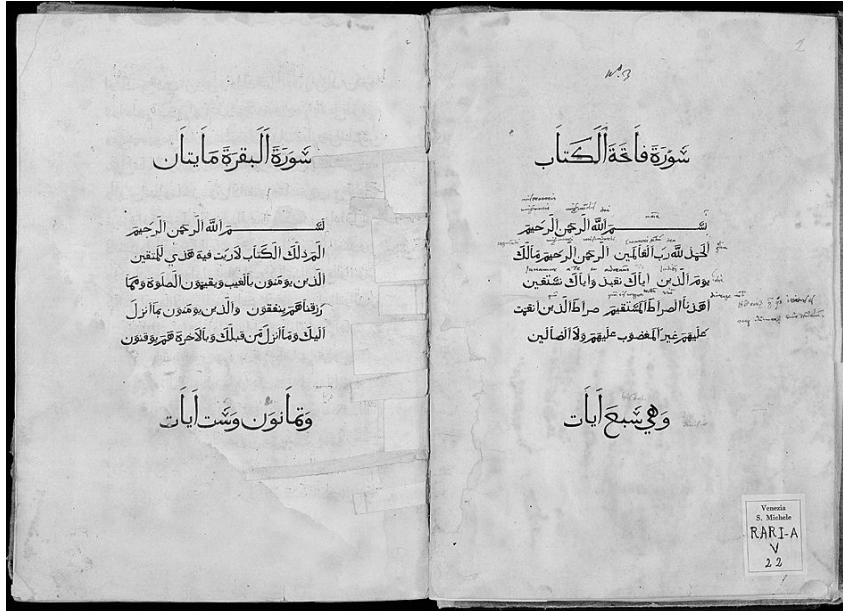 2
Nº 3
سَُورَة فَاتحَة اَلَكتَاب
بســـــــم اَللَّه اَلَرحمَن اَلَرحيم
اَلحمَد للَّه رَب اَلعَالمَين اَلَرحمَن اَلَرحيم مَالَك
يَوم اَلَدين اَيَاك نعَبد وَاَيَاك نسَتعَين
اَهدنَا اَلصرَاط اَلمسَتقيَم صرَاط اَلَذين اَنعَمت
عَليَهم غَير اَلمغضُوب عَليَهم وَلَا اَلضَالَين
وَهي سَبع اَيَات
سَُورَة اَلَبقرَة مَايتَان
بســـــــم اَللَّه اَلَرحمَن اَلَرحيم
اَلم ذَلَك اَلكتَاب لَارَيب فيَه هَدَي للمَتقين
اَلَذين يَومنَون بالَغيب وَيقيمَون اَلصلَوة وَممَا
رَزقنَاهَم يَنفقَون وَاَلَذين يَومنَون بمَا اَنزَل
اَليَك وَمَا اَنزَل مَن قبَلك وَبالَاخرَة هَم يَوقنَون
وَثمَانَون وَسَت اَيَات
Venezia
S. Michele
RARI-A
V
22